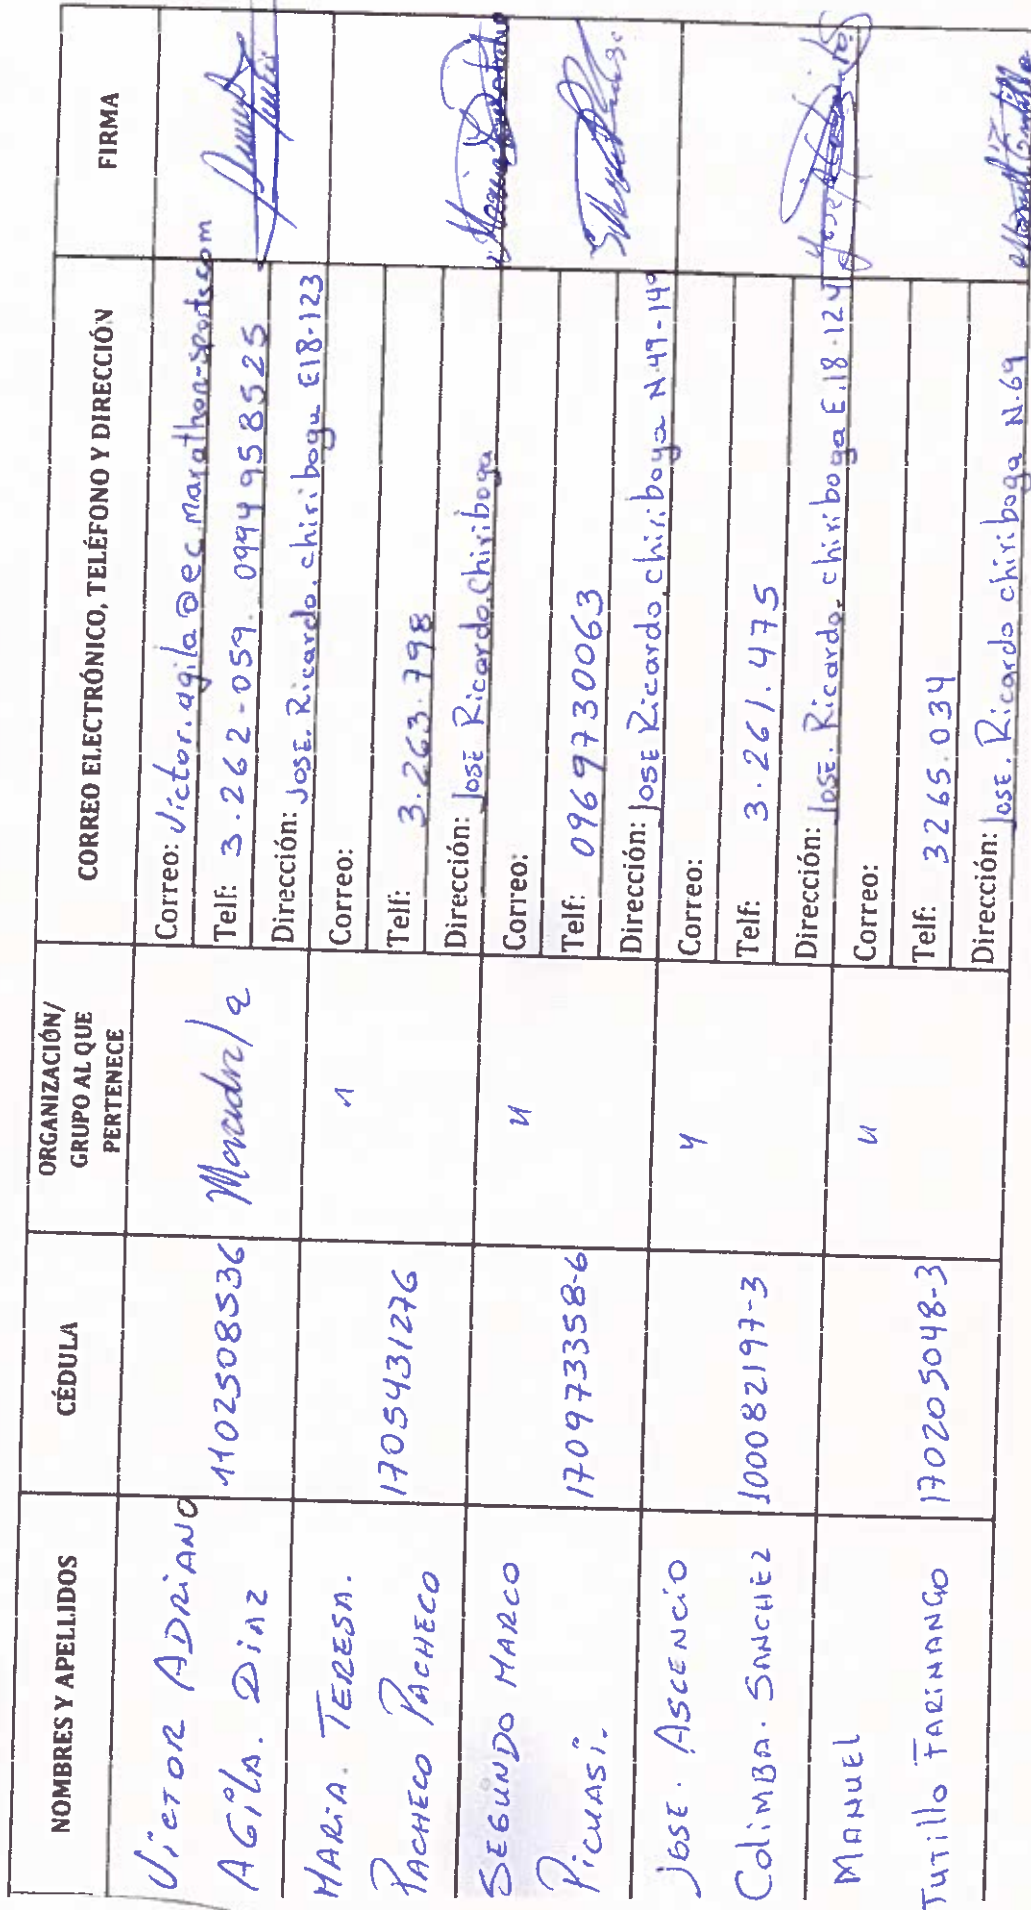 NOMBRES Y APELLIDOS
CÉDULA
ORGANIZACIÓN/
GRUPO AL QUE
PERTENECE
CORREO ELECTRÓNICO, TELÉFONO Y DIRECCIÓN
FIRMA
VICTOR ADRIANO
AGILA. DIAZ
1102508536
Correo: Victor.agila@ec.marathon-sports.com
Telf: 3.262-059. 0994958525
Dirección: JOSE. Ricardo. chiriboga E18-123
MARIA. TERESA.
PACHECO PACHECO
1705431276
Correo:
Telf: 3.263.798
Dirección: JOSE Ricardo. Chiriboga
SEGUNDO MARCO
PICUASI.
170973358-6
Correo:
Telf: 0969730063
Dirección: JOSE Ricardo. chiriboga N.49-149
JOSE. ASCENCIO
COLIMBA. SANCHEZ
100082197-3
Correo:
Telf: 3.261.475
Dirección: JOSE. Ricardo. chiriboga E.18-124
MANUEL
TUTILLO FARINANGO
170205048-3
Correo:
Telf: 3265.034
Dirección: JOSE. Ricardo chiriboga N.69